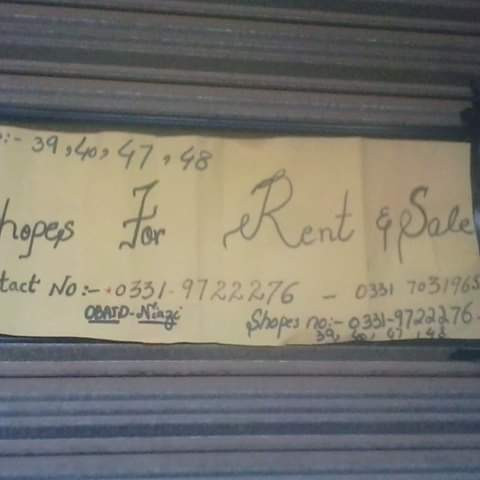 :- 39, 40, 47, 48
hopes For Rent & Sale
tact No:- 0331-9722276 - 0331 7031965
OBAID-Niazi Shopes no:- 0331-9722276-
39, 40, 47, 48